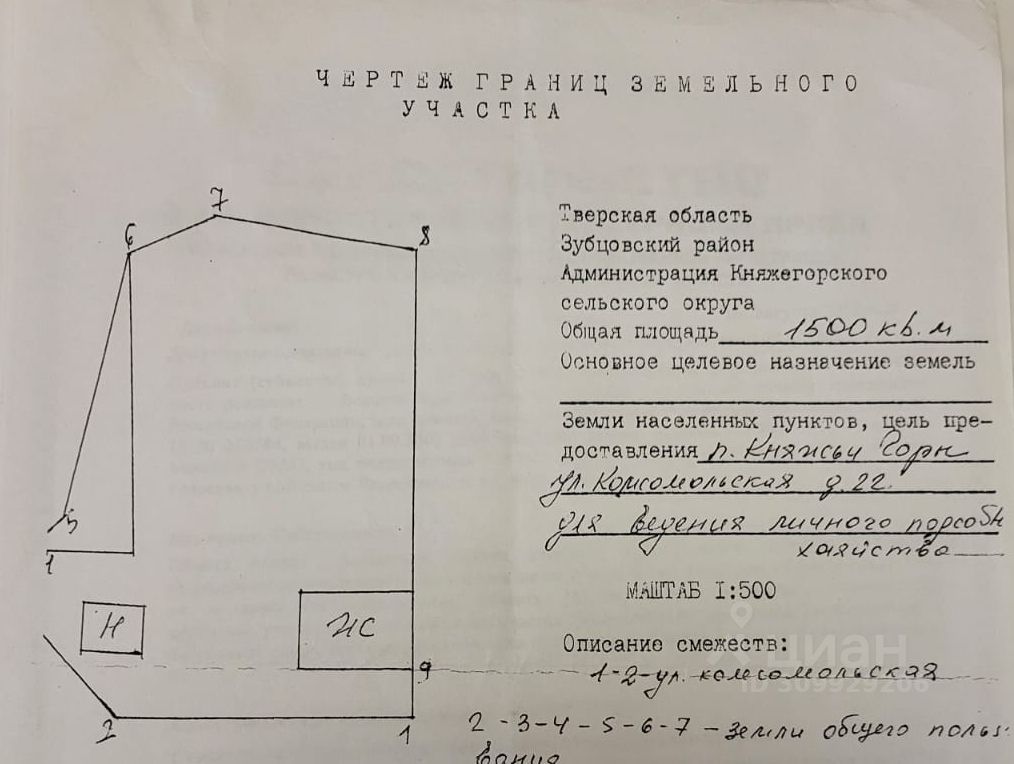 ЧЕРТЕЖ ГРАНИЦ ЗЕМЕЛЬНОГО
УЧАСТКА
Тверская область
Зубцовский район
Администрация Княжегорского
сельского округа
Общая площадь 1500 кв. м
Основное целевое назначение земель
Земли населенных пунктов, цель пре-
доставления п. Княжьи Горы
ул. Комсомольская д. 22.
для ведения личного подсобн
хозяйства
МАСШТАБ 1:500
Описание смежеств:
1-2-ул. комсомольская
2-3-4-5-6-7-земли общего пользо
вания
7
6
8
5
1
Н
ЖС
9
2
1
циан
ID 309929206